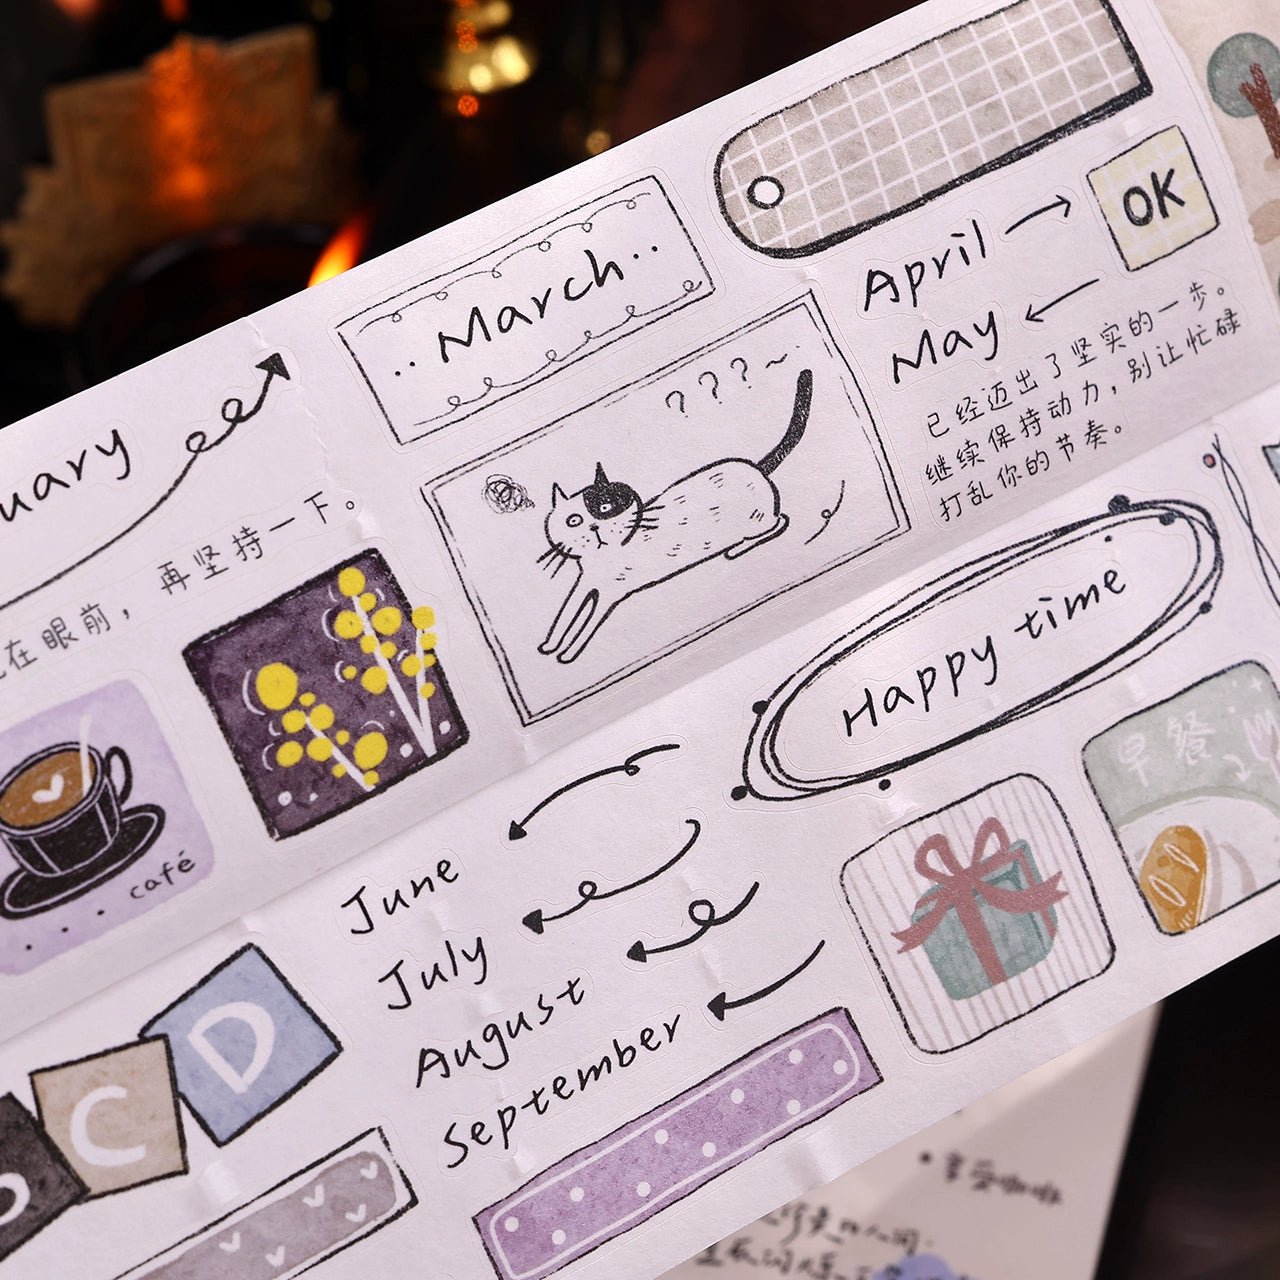 March
OK
April
May
已经迈出了坚实的一步。
继续保持动力，别让忙碌
打乱你的节奏。
uary
在眼前，再坚持一下。
???~
café
Happy time
早餐
June
July
August
September
D
C